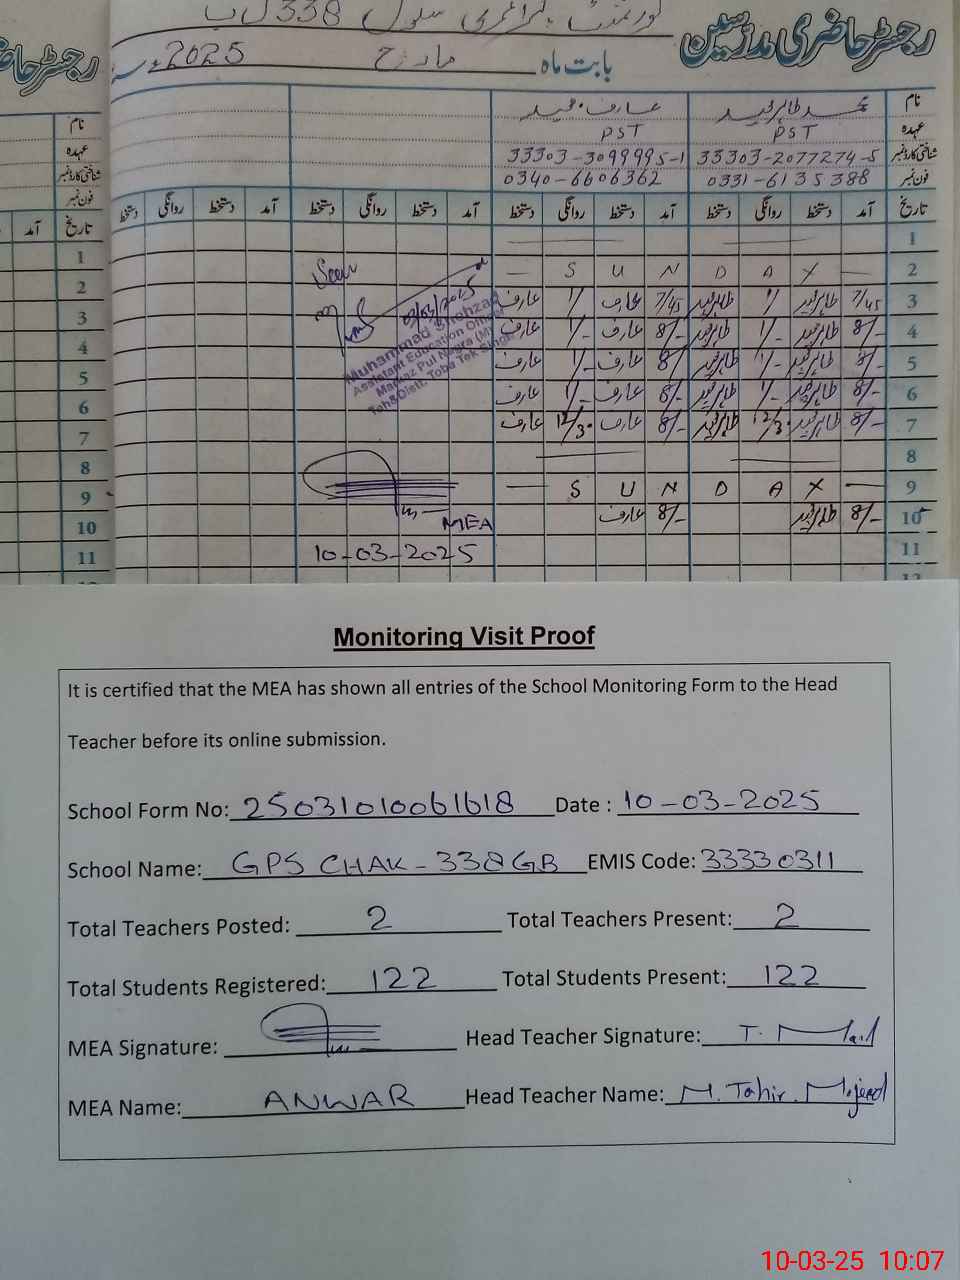 گورنمنٹ پرائمری سکول 338 گ ب
رجسٹر حاضری مدرسین
بابت ماہ مارچ 2025ء
نام
عہدہ PST PST
شناختی کارڈ نمبر 33303-2077274-5 33303-3099995-1
فون نمبر 0331-6135388 0340-6606362
تاریخ آمد دستخط روانگی دستخط آمد دستخط روانگی دستخط آمد دستخط روانگی دستخط آمد دستخط روانگی دستخط
1
2 S U N D A Y
3 7/45 1/ 7/45 عارف 1/ عارف
4 8/- 1/- 8/- عارف 1/- عارف
5 8/- 1/- 8/ عارف 1/- عارف
6 8/- 1/- 8/- عارف 1/- عارف
7 8/- 12/30 8/- عارف 12/30 عارف
8
9 S U N D A Y
10 8/- 8/- عارف
11
12
Seen
Muhammad Shahzad
Assistant Education Officer
Markaz Pul Nagra (M)
Teh&Distt. Toba Tek Singh
MEA
10-03-2025
رجسٹر حاضری
نام
عہدہ
شناختی کارڈ نمبر
فون نمبر
تاریخ آمد دستخط
1
2
3
4
5
6
7
8
9
10
11
Monitoring Visit Proof
It is certified that the MEA has shown all entries of the School Monitoring Form to the Head
Teacher before its online submission.
School Form No: 25031010061618 Date : 10-03-2025
School Name: GPS CHAK-338GB EMIS Code: 33330311
Total Teachers Posted: 2 Total Teachers Present: 2
Total Students Registered: 122 Total Students Present: 122
MEA Signature: Head Teacher Signature:
MEA Name: ANWAR Head Teacher Name: M. Tahir
10-03-25 10:07